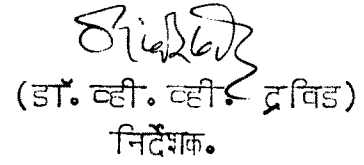 (डॉ. व्ही. व्ही. द्रविड)
निर्देशक.